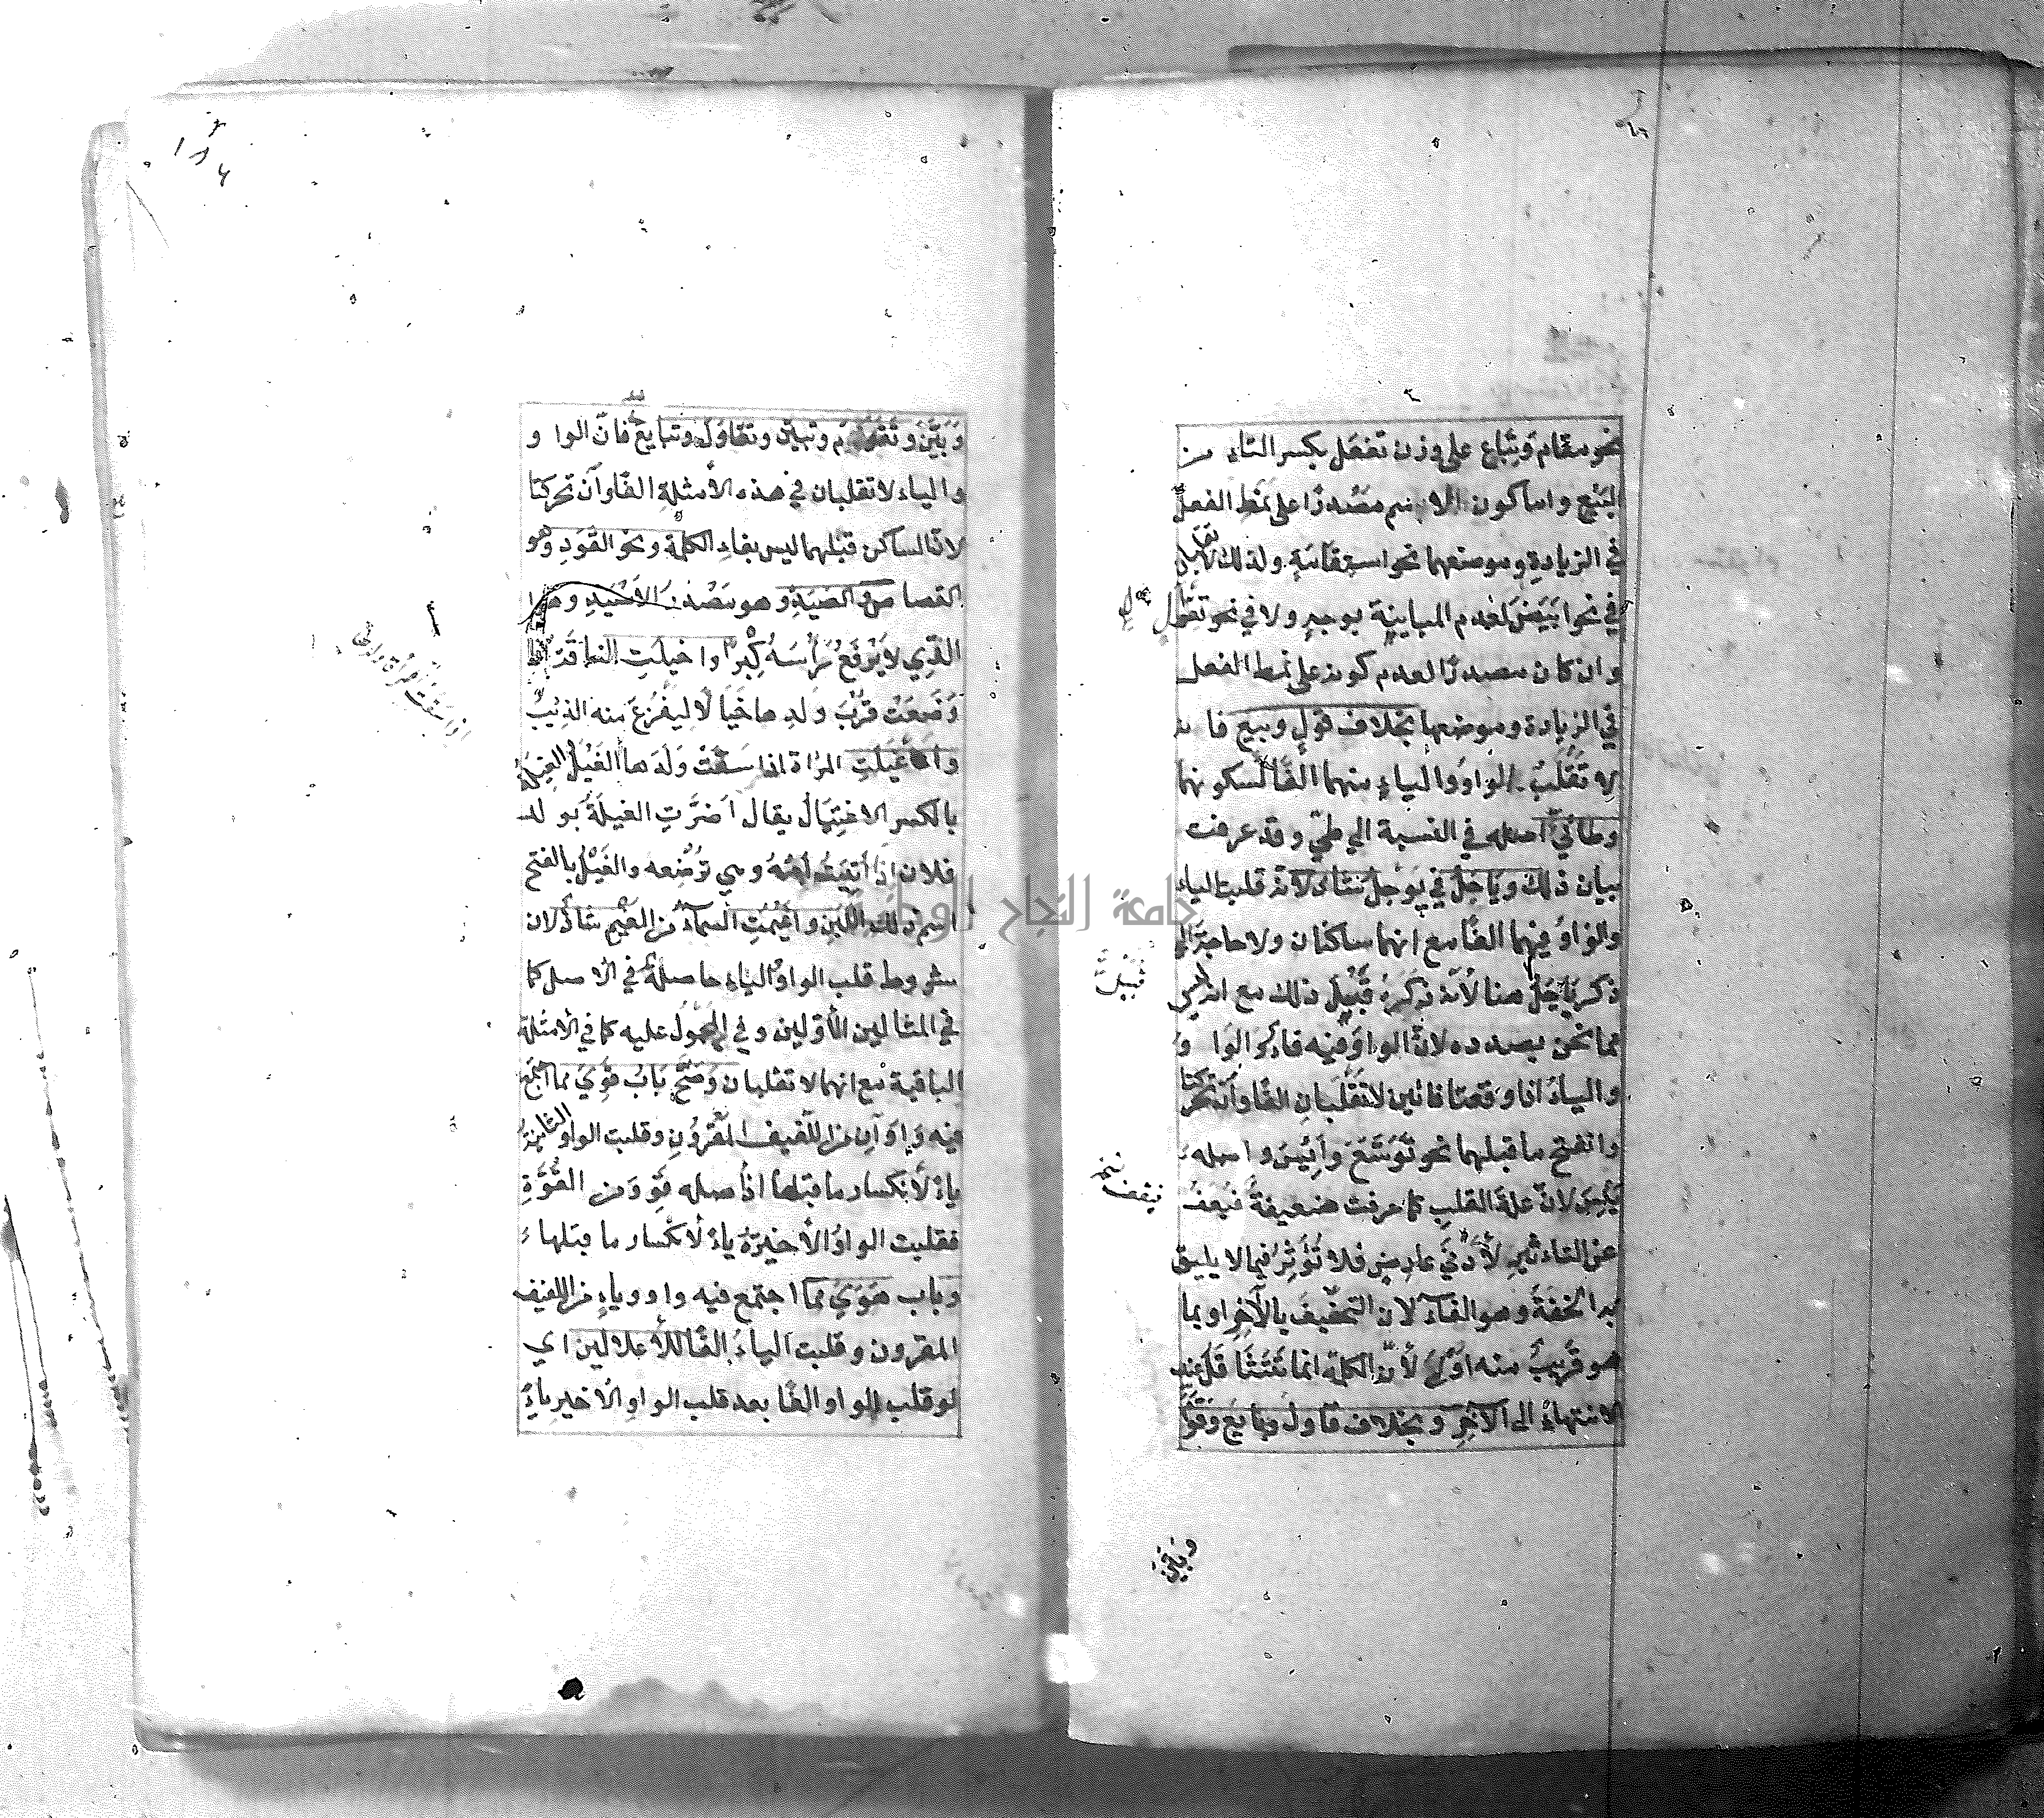 نحو مقام وتِبَاع على وزن تفعل بكسر التاء من
البيع واما كون الاسم مَصْدرًا على نمَطِ الفعل
في الزيادةِ وموضعهما نحو استقامَةٍ ولذلك لا تقلبان
في نحو ابيَضَّ لعدم المباينة بوجهٍ ولا في نحو تَقْوَالٍ
وان كان مصدرًا لعدم كونه على نمط الفعل
في الزيادة وموضعها بخلاف قولٍ وبيع فانه
لا تُقْلَبُ الواوُ والياءِ منهما الفًا لسكونهما
وطائيٌّ اصله في النسبة الى طيّ وقد عرفت
بيان ذلك ويَاجَلُ في يَوْجَل شاذ لانه قلبت الياء
والواوُ فيهما الفًا مع انهما ساكنان ولا حاجة الى
ذكر يَاجَلُ هنا لأنه ذكَرَهُ قُبَيْل ذلك مع انه ليس
مما نحن بصدده لانّ الواوَ فيه فاءٌ والوا و
والياءُ اذا وقعتا فائين لا تقلبان الفًا وان تحركتا
وانفتح ما قبلهما نحو تَوَسَّعَ وأَيِسَ واصله
يَئِسَ لانّ علةَ القلبِ كما عرفت ضعيفةٌ فيَقِفُ
عن التاءثيرِ لأدنى عارِضٍ فلا تُؤَثِّرُ فيما لا يليق
به الخفةُ وهو الفاءُ لان التخفيفَ بالآخِرِ او بما
هو قريبٌ منه اَوْلَى لأنّ الكلمة انما تتثاقل عند
الانتهاءِ الى الآخِرِ وبخلاف قاوَل وبايَع وقَوَّمَ
قُبَيْلَ
فيقف نخـ
وبَيَّنَ
١٨٤
وَبَيَّنَ وتَقَوَّم وتبيّن وتقاوَل وتبايعَ فانّ الوا و
والياء لا تقلبان في هذه الأمثلةِ الفًا وان تحركتا
لانّ الساكن قبْلهما ليس بفاءِ الكلمة ونحو القَوَدِ وهو
القصاص والصَيَدِ وهو مَصْدرُ الأَصْيَدِ وهو
الذي لا يَرْفَعُ رَأْسَهُ كِبْرًا واخيلَتِ الناقة اذا
وَضَعَتْ قُرْبَ ولدها خَيَالًا لِيفْزَعَ منه الذئبُ
واَغْيَلَتِ المرْاة اذا سَقَتْ وَلَدَها الغَيْلَ الغِيلَةُ
بالكسر الاغتيال يقال اَضَرَّتِ الغيلَةُ بولد
فلان اذا اُتِيَتْ اُمُّهُ وهي تُرْضِعه والغَيْلُ بالفتح
اسم ذلك اللبَنِ واَغْيَمَتِ السماءُ من الغَيْمِ شاذٌ لان
شروط قلب الواوِ والياءِ حاصلةٌ في الاصل كما
في المثالين الأوّلين وفي المحمُول عليه كما في الأمثلةِ
الباقية مع انهما لا تقلبان وصَحَّ بَابُ قَوِيَ مما اجتمع
فيه وَاوَانِ من اللفيف المقرُونِ وقلبت الواو الثانيةُ
ياءً لانكسار ما قبلها اذْ اصله قَوِوَ من القُوَّةِ
فقلبت الواوُ الأخيرَةُ ياءً لانكسار ما قبلها
وباب هَوَى مما اجتمع فيه واو وياءٍ من اللفيف
المقرون وقلبت الياءُ الفًا للأعلالين اي
لو قلب الواو الفًا بعد قلب الواوِ الأخير ياءً
اذا سَقَتْ المرأة ولدها